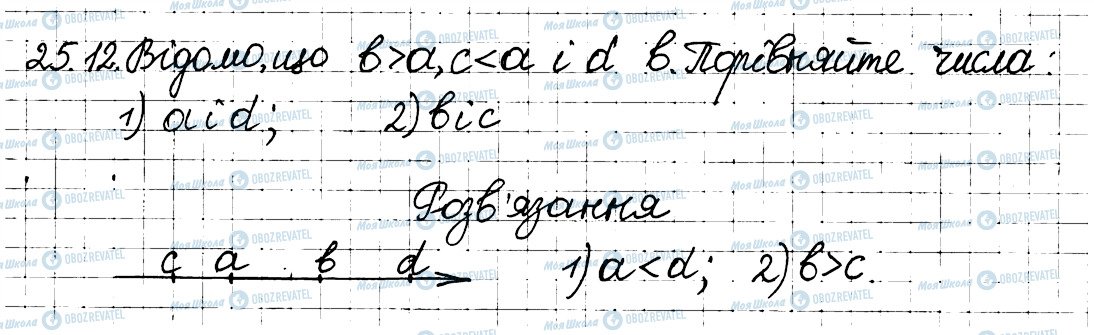 25.12. Відомо, що b>a, c<a і d b. Порівняйте числа:
1) a і d; 2) b і c
Розв'язання
c a b d 1) a<d; 2) b>c.